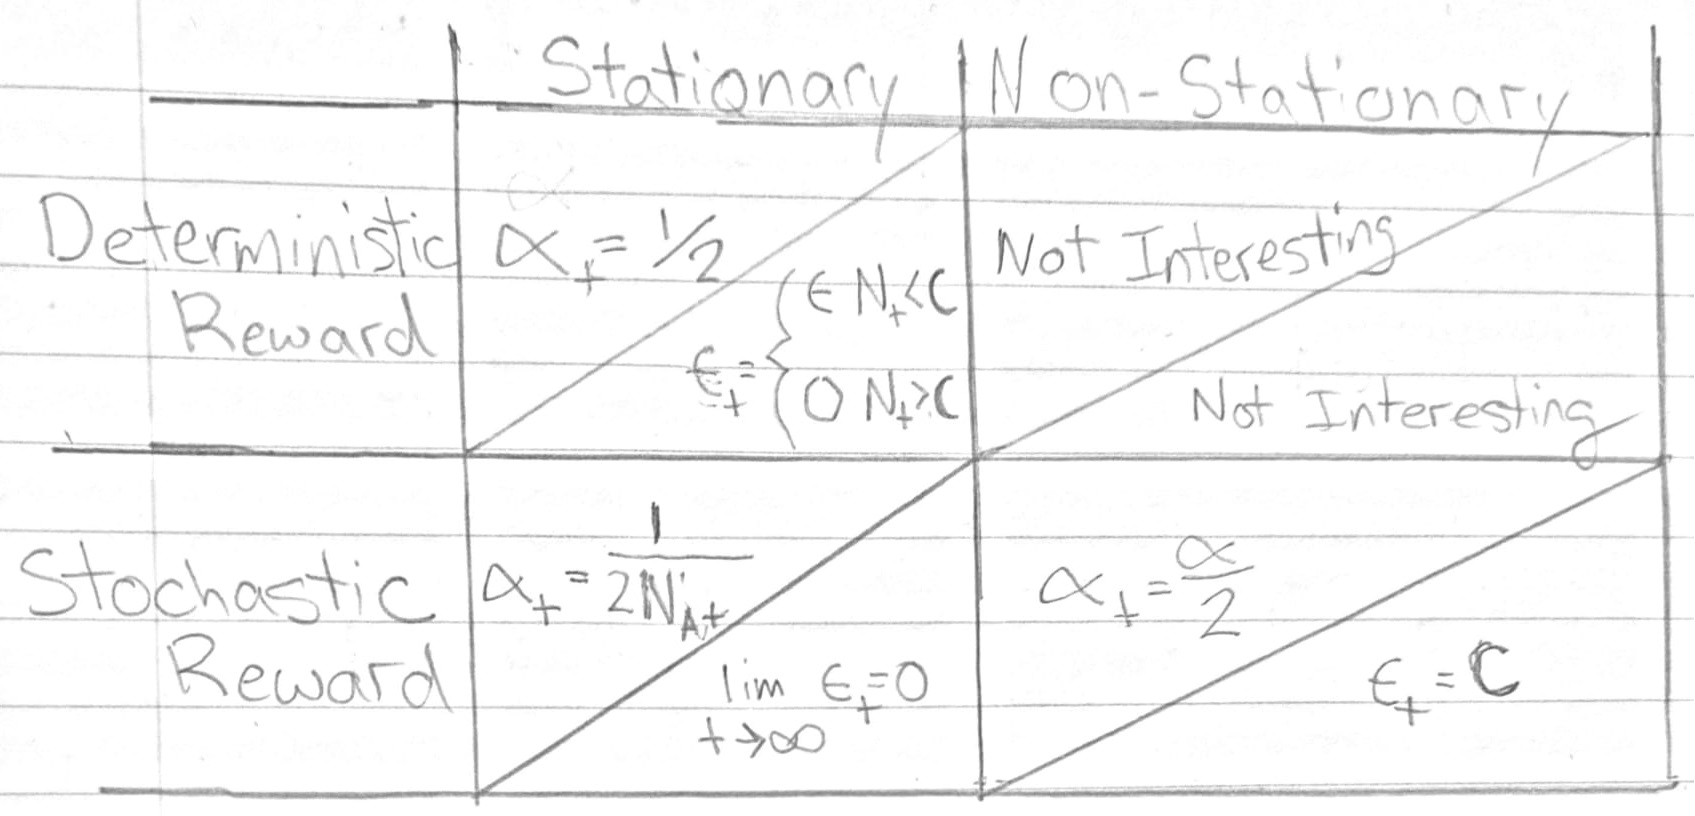 Stationary Non-Stationary
Deterministic Reward
α
αₜ = 1/2
ϵₜ = { ϵ Nₜ<C
0 Nₜ>C
Not Interesting
Not Interesting
Stochastic Reward
αₜ = 1 / 2N_{A,t}
lim ϵₜ=0
t→∞
αₜ = α / 2
ϵₜ = C